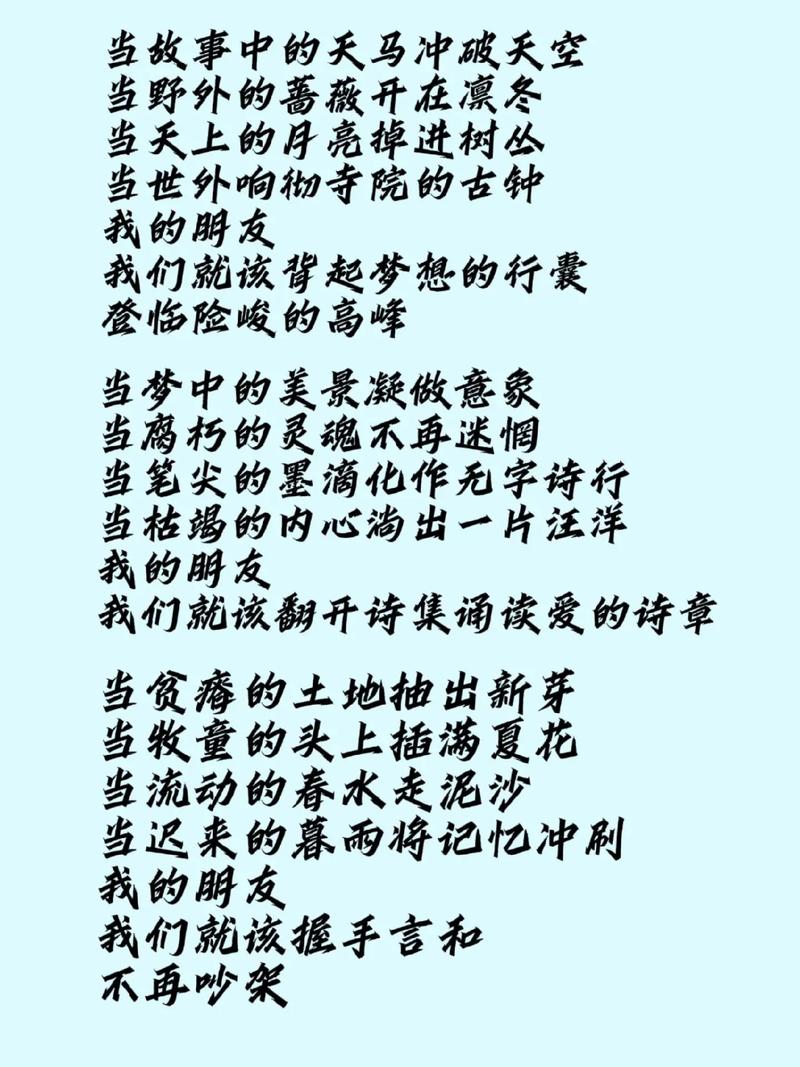 当故事中的天马冲破天空
当野外的蔷薇开在凛冬
当天上的月亮掉进树丛
当世外响彻寺院的古钟
我的朋友
我们就该背起梦想的行囊
登临险峻的高峰
当梦中的美景凝做意象
当腐朽的灵魂不再迷惘
当笔尖的墨滴化作无字诗行
当枯竭的内心淌出一片汪洋
我的朋友
我们就该翻开诗集诵读爱的诗章
当贫瘠的土地抽出新芽
当牧童的头上插满夏花
当流动的春水走泥沙
当迟来的暮雨将记忆冲刷
我的朋友
我们就该握手言和
不再吵架